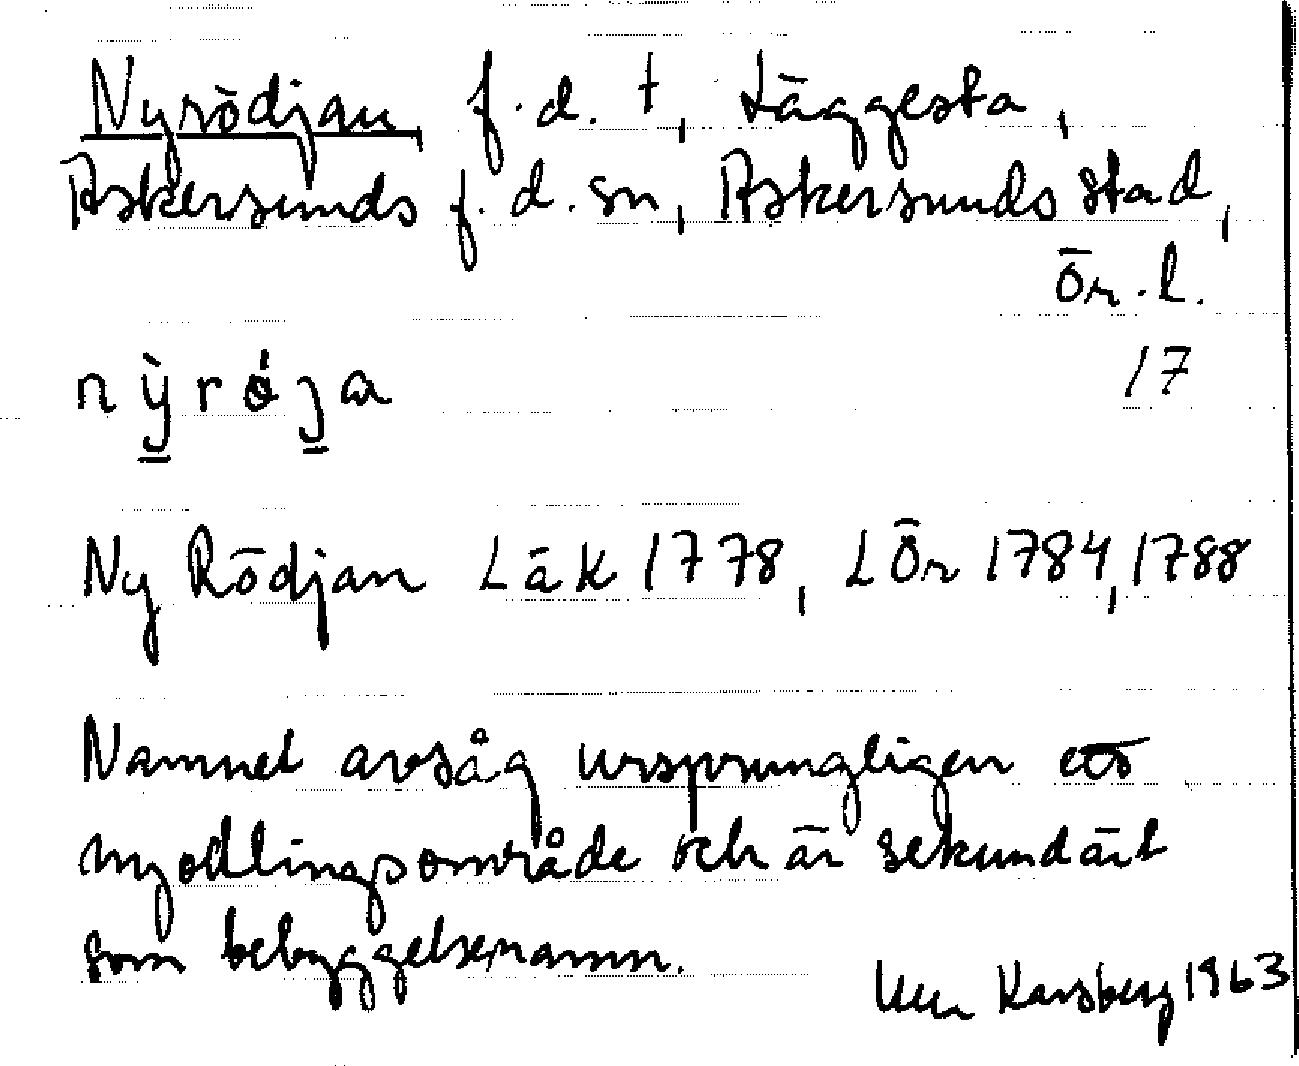 Nyrödjan f.d. t, Läggesta,
Askersunds f.d. sn, Askersunds stad,
Ör.l.
17
nỳröja
Ny Rödjan Läk 1778, LÖr 1784, 1788
Namnet avsåg ursprungligen ett
nyodlingsområde och är sekundärt
som bebyggelsenamn.
Karsberg 1963